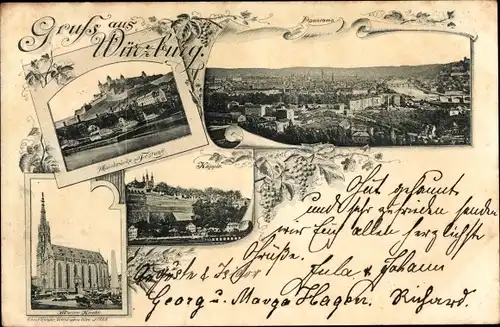 Gruss aus
Würzburg.
Panorama
Mainbrücke u. Festung
Käppele
Marien-Kirche
Gut gelaunt
und sehr zufrieden senden
wir Euch allen herzlichste
Grüße.
Auguste & Julu & Johann
Georg u. Marga Hagen. Richard.